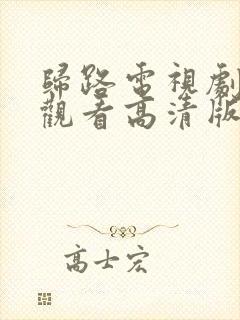 歸路電視劇
觀看高清版
高士宏